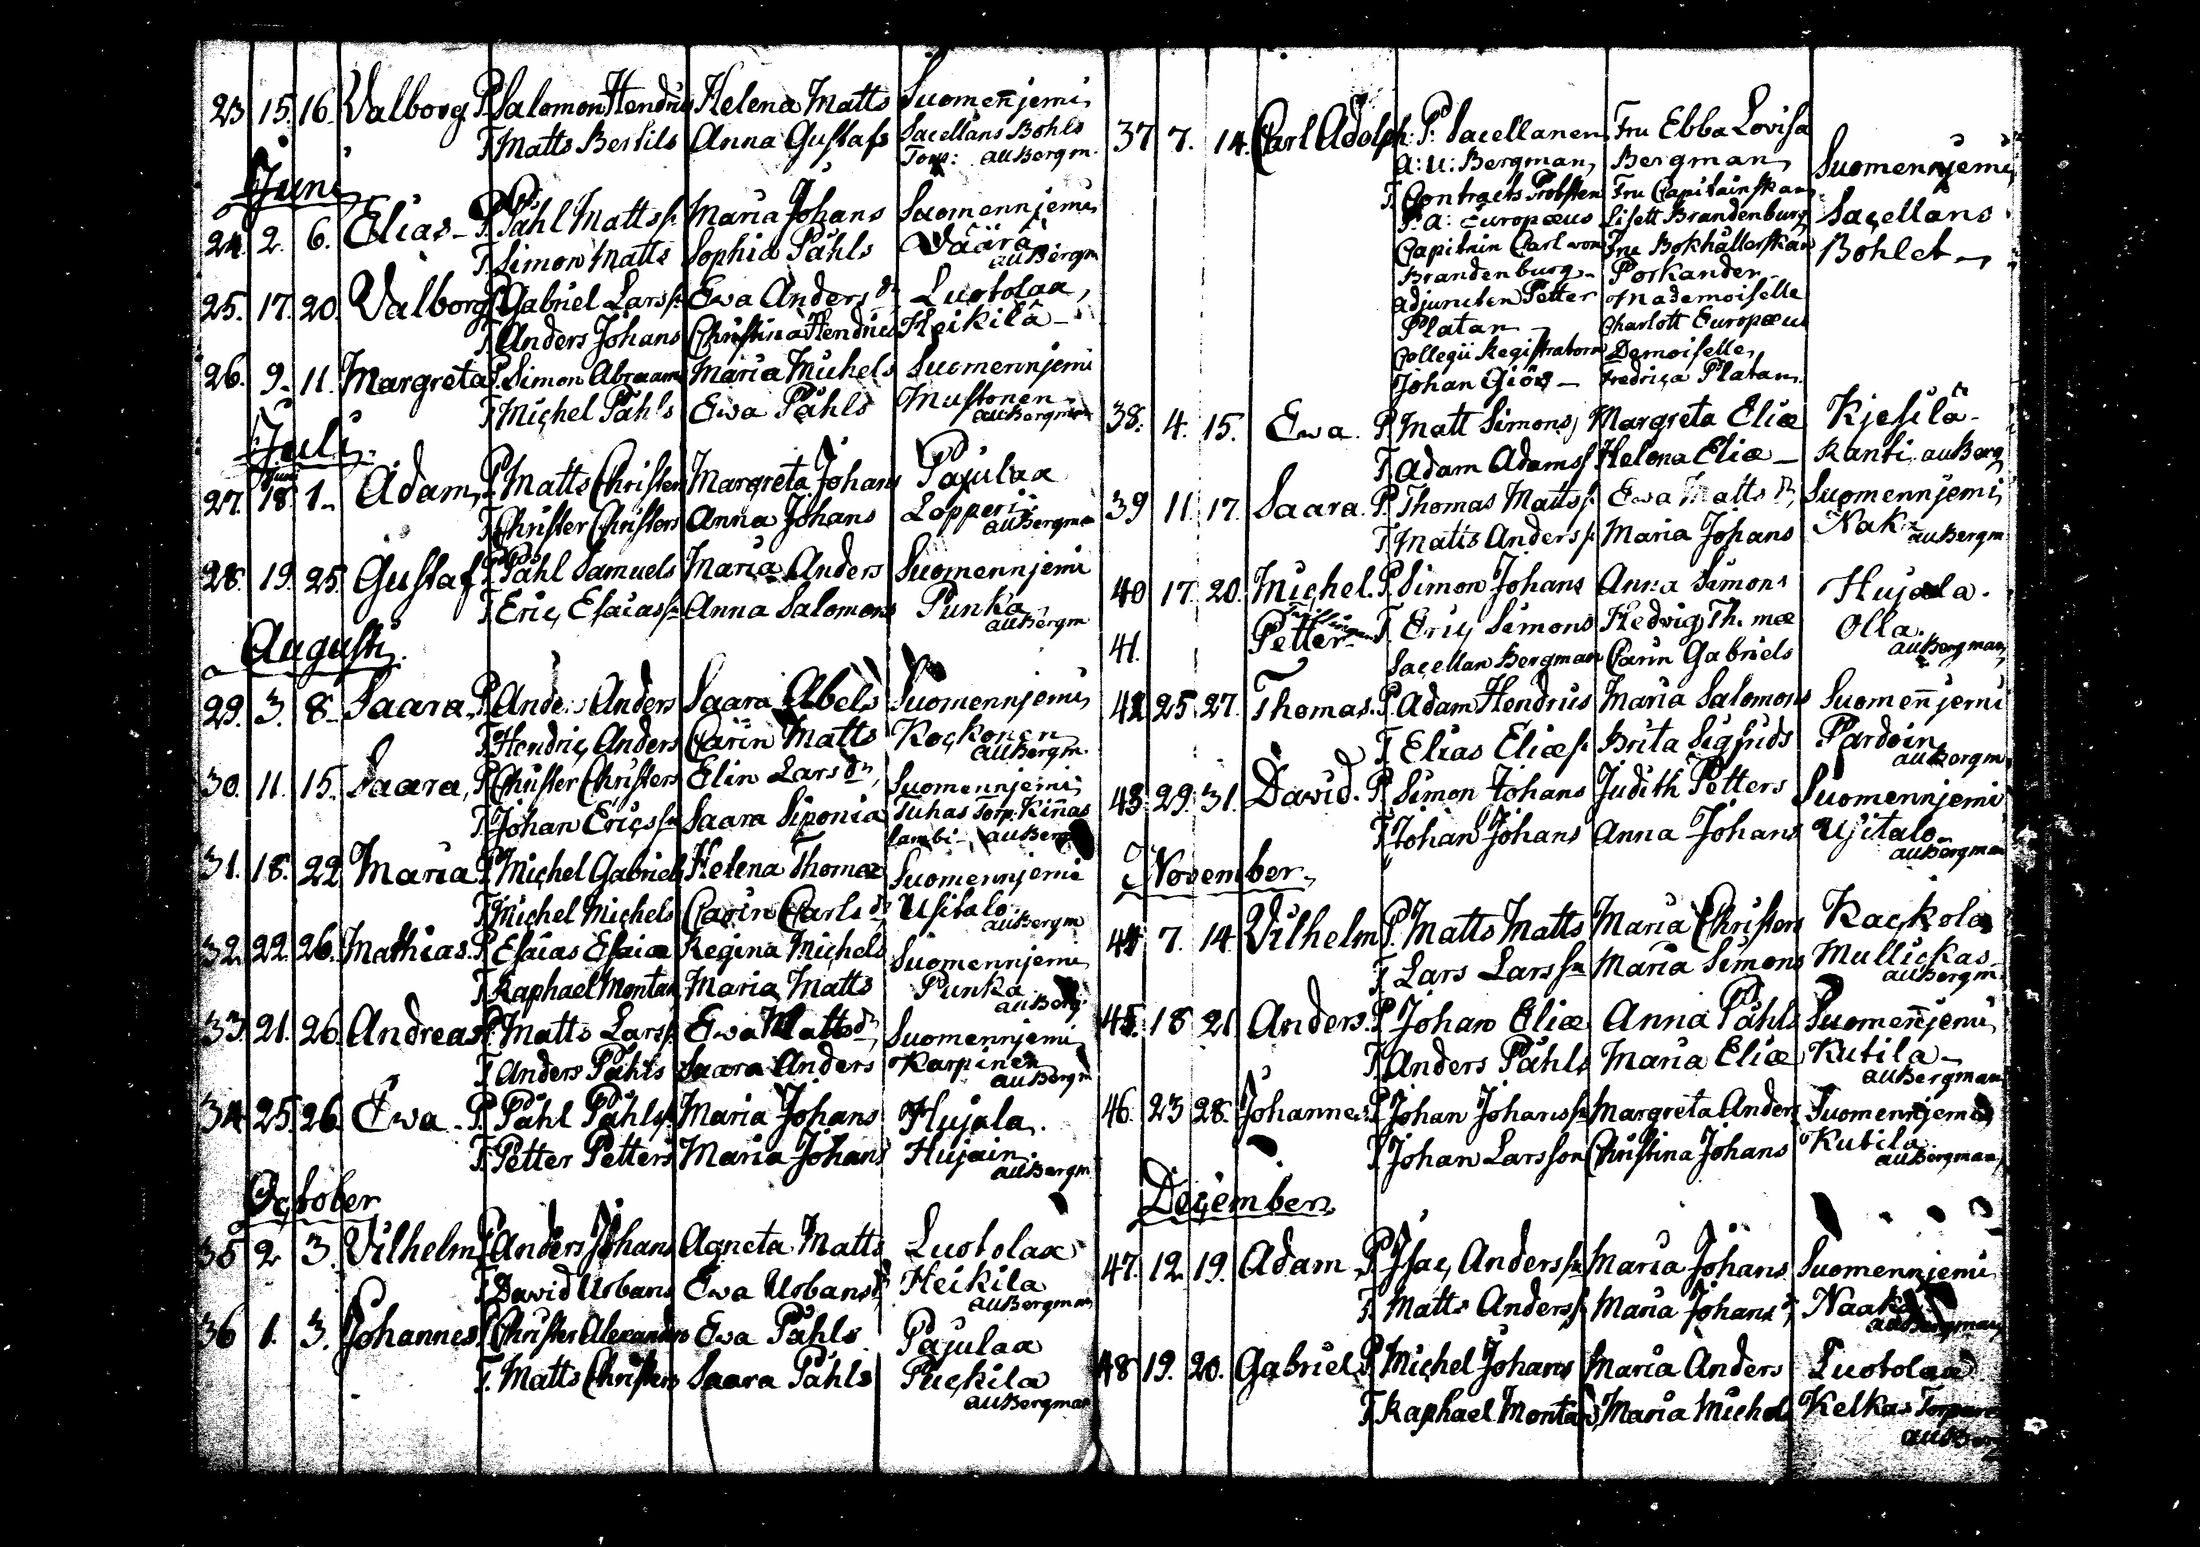 23 15. 16. Valborg P. Salomon Hendrics Helena Matts Suomen̄jemi
T. Matts Bertils Anna Gustafs Sacellans Bohls
Torp: auBergm.
Juni
24. 2. 6. Elias P. Påhl Mattss. Maria Johans Suomennjemi
T. Simon Matts Sophia Påhls Väärä
auBergm
25. 17. 20. Valborg P. Gabriel Larss. Ewa Anders dr Luotolax,
T. Anders Johans Christina Hendrics Heikilä
26. 9. 11. Margreta P. Simon Abraam Maria Michels Suomennjemi
T. Michel Påhls Ewa Påhls Mustonen
auBergman
Juli
Juni
27. 18. 1. Adam P. Matts Christers Margreta Johans Pajulax
T. Christer Christers Anna Johans Lopperi
auBergman
28. 19. 25. Gustaf P. Påhl Samuels Maria Anders Suomennjemi
T. Eric Esaiass. Anna Salomons Punka
auBergm
Augusti
29. 3. 8. Saara P. Anders Anders Saara Abels Suomennjemi
T. Hendric Anders Carin Matts Kockonen
auBergm
30. 11. 15. Saara, P. Christer Christers Elin Lars dr, Suomennjemi
T. Johan Ericsson Saara Siponia Tuhas Torp. Kin̄as
lambi auBerg
31. 18. 22 Maria P. Michel Gabriels Helena Thomæ Suomennjemi
T. Michel Michels Carin Carls dr Usitalo
auBergm
32. 22. 26. Mathias. P. Esaias Esaiæ Regina Michels Suomennjemi
T. Raphael Montan Maria Matts Punka
auBerg
33. 21. 26. Andreas P. Matts Larss. Ewa Matts dr, Suomennjemi
T. Anders Påhls Saara Anders Karpinen
auBergm
34 25. 26. Ewa P. Påhl Påhls. Maria Johans Hujala.
T. Petter Petters Maria Johans Hujain
auBergm
October
35 2 3. Vilhelm P. Anders Johans Agneta Matts Luotolax
T. David Urbans Ewa Urbans dr Heikila
auBergman
36 1. 3. Johannes P. Christer Alexanders Ewa Påhls Pajulax
T. Matts Christers Saara Påhls Puckila
auBergman
37 7. 14. Carl Adolph: P: Sacellanen Fru Ebba Lovisa
A: U: Bergman, Bergman, Suomennjemi
T. Contracts Probsten Fru Capitainskan
P: A: Europæus Lisett Brandenburg Sacellans
Capitain Carl von Fru Bokhållerskan Bohlet
Brandenburg Porkander
Adjuncten Petter Mademoiselle
Platan Charlott Europæus
Collegii Registratorn Demoiselle
Johan Giös Fredrica Platan.
38. 4. 15. Ewa. P. Matt Simons, Margreta Eliæ Kjesilä
T. Adam Adamss. Helena Eliæ Kanti auBerg
39 11. 17. Saara. P. Thomas Mattss. Ewa Matts dr, Suomennjemi
T. Matts Anderss. Maria Johans Nak
auBergm
40 17. 20. Michel. P. Simon Johans Anna Simons Hujala.
Tvillingar
41. Petter T. Eric Simons Hedvig Thomæ Olla
Sacellan Bergman Carin Gabriels auBergman
42 25. 27. Thomas. P. Adam Hendrics Maria Salomons Suomen̄jemi
T. Elias Eliæs. Brita Sigfrids Pardoin
auBergm
43. 29. 31. David. P. Simon Johans Judith Petters Suomennjemi
T. Johan Johans Anna Johans Ujitalo
auBergman
November
44 7. 14 Vilhelm P. Matts Matts Maria Christers Kackola
T. Lars Larsson Maria Simons Mullickas
auBergm
45. 18 21 Anders. P. Johan Eliæ Anna Påhls Suomen̄jemi
T. Anders Påhls Maria Eliæ Kutila
auBergman
46. 23 28. Johannes P. Johan Johansson Margreta Anders Suomennjemi
T. Johan Larsson Christina Johans Kutila
auBergman
December
47. 12. 19. Adam P. Isac Andersson Maria Johans Suomennjemi
T. Matts Anderss. Maria Johans dr, Naak
auBergman
48 19. 20. Gabriel P. Michel Johans Maria Anders Luotolax
T. Raphael Montan Maria Michels Kelkas Torpare
auBerg